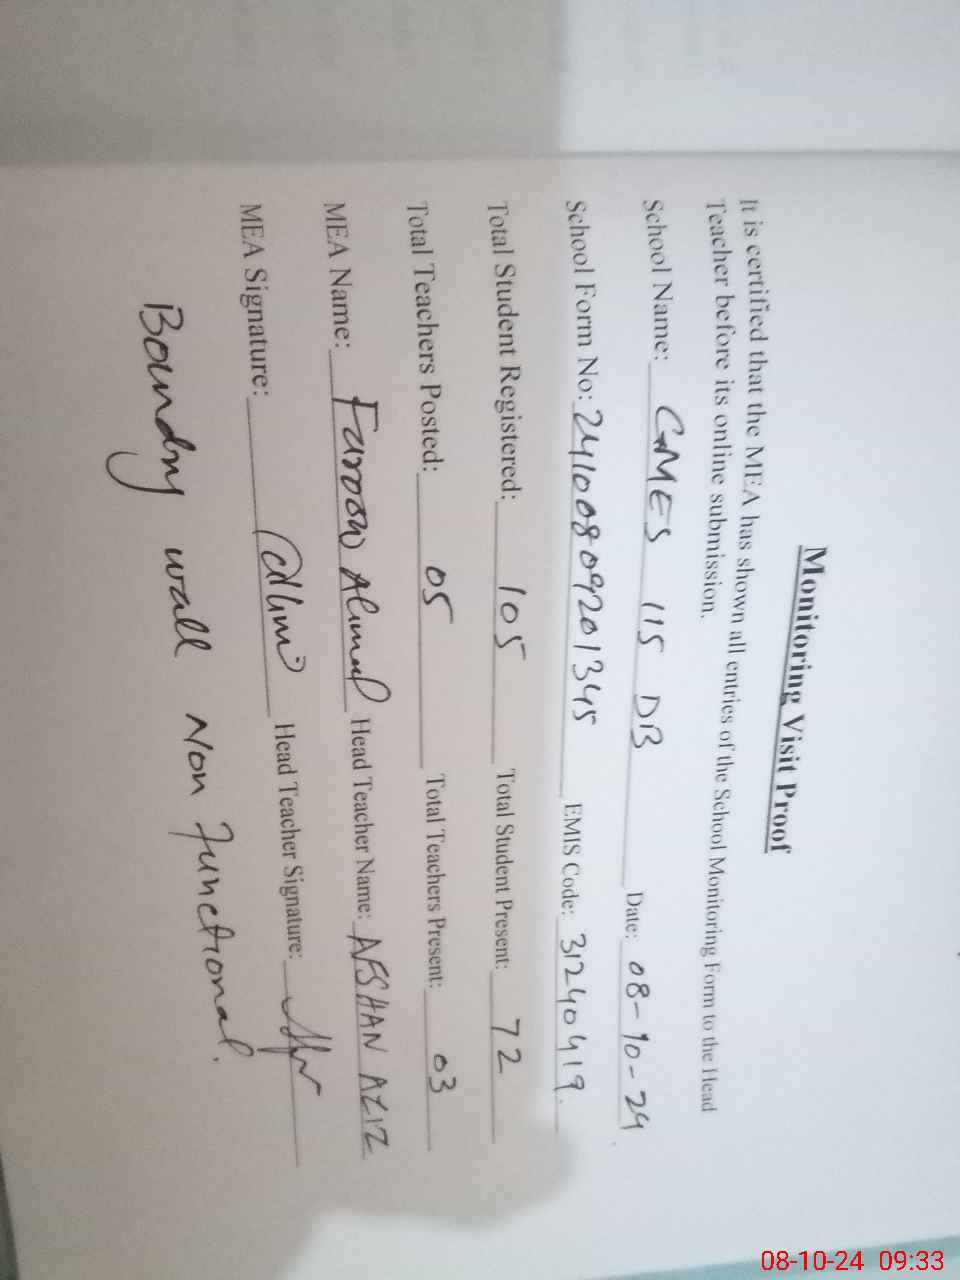 Monitoring Visit Proof
It is certified that the MEA has shown all entries of the School Monitoring Form to the Head
Teacher before its online submission.
School Name: GMES 115 DB Date: 08-10-24
School Form No: 24100809201345 EMIS Code: 31240419
Total Student Registered: 105 Total Student Present: 72
Total Teachers Posted: 05 Total Teachers Present: 03
MEA Name: Farooq Ahmed Head Teacher Name: AFSHAN AZIZ
MEA Signature: Head Teacher Signature:
Boundry wall Non Functional.
08-10-24 09:33